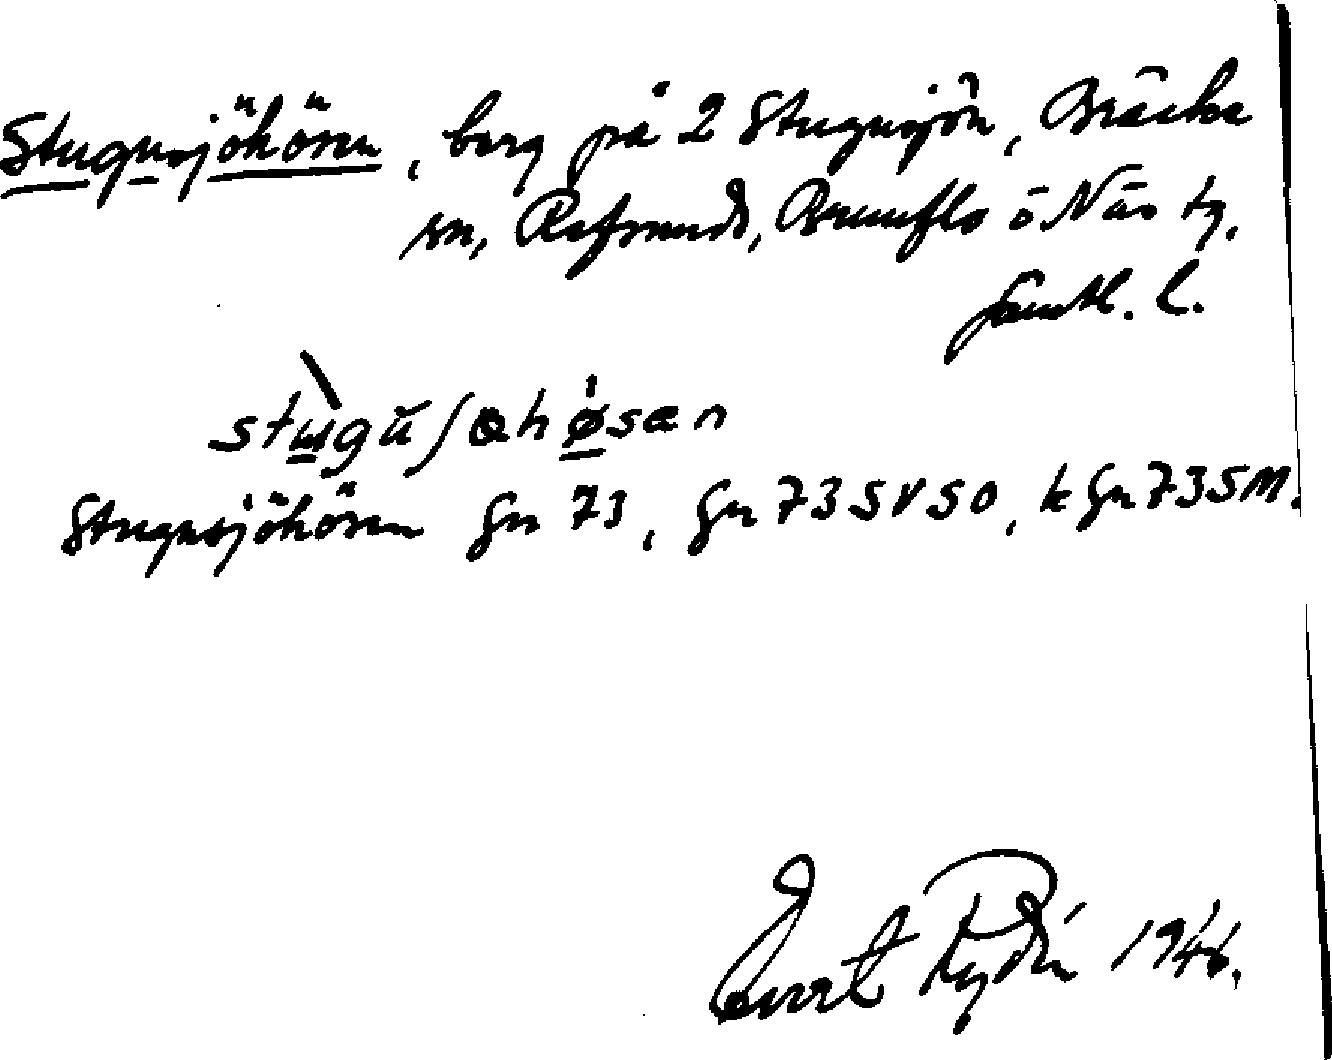 Stugusjöhösen, berg på 2 Stugusjön, Bräcke
sn, Refsunds, Brunflo o Näs tg.
Jämtl. l.
stùgŭʃøhøsæn
Stugusjöhösen Gn 73, Gn 73 SV SO, k Gn 73 SM.
Evert Rydén 1946.